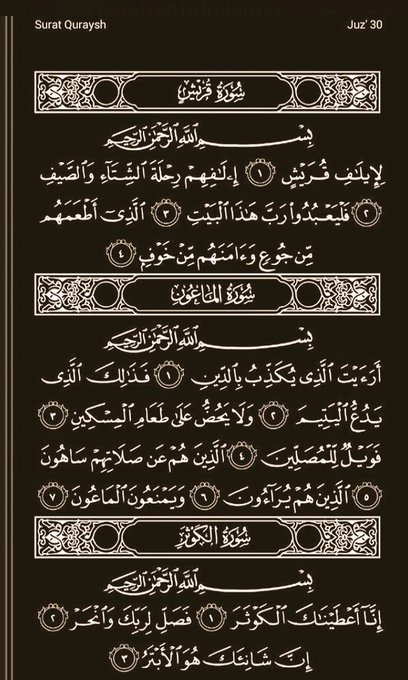 Surat Quraysh
Juz' 30
سُورَةُ قُرَيْشٍ
بِسْمِ ٱللَّهِ ٱلرَّحْمَٰنِ ٱلرَّحِيمِ
لِإِيلَٰفِ قُرَيْشٍ ١ إِۦلَٰفِهِمْ رِحْلَةَ ٱلشِّتَآءِ وَٱلصَّيْفِ
٢ فَلْيَعْبُدُوا۟ رَبَّ هَٰذَا ٱلْبَيْتِ ٣ ٱلَّذِىٓ أَطْعَمَهُم
مِّن جُوعٍ وَءَامَنَهُم مِّنْ خَوْفٍۭ ٤
سُورَةُ المَاعُونِ
بِسْمِ ٱللَّهِ ٱلرَّحْمَٰنِ ٱلرَّحِيمِ
أَرَءَيْتَ ٱلَّذِى يُكَذِّبُ بِٱلدِّينِ ١ فَذَٰلِكَ ٱلَّذِى
يَدُعُّ ٱلْيَتِيمَ ٢ وَلَا يَحُضُّ عَلَىٰ طَعَامِ ٱلْمِسْكِينِ ٣
فَوَيْلٌ لِّلْمُصَلِّينَ ٤ ٱلَّذِينَ هُمْ عَن صَلَاتِهِمْ سَاهُونَ
٥ ٱلَّذِينَ هُمْ يُرَآءُونَ ٦ وَيَمْنَعُونَ ٱلْمَاعُونَ ٧
سُورَةُ الكَوْثَرِ
بِسْمِ ٱللَّهِ ٱلرَّحْمَٰنِ ٱلرَّحِيمِ
إِنَّآ أَعْطَيْنَٰكَ ٱلْكَوْثَرَ ١ فَصَلِّ لِرَبِّكَ وَٱنْحَرْ ٢
إِنَّ شَانِئَكَ هُوَ ٱلْأَبْتَرُ ٣